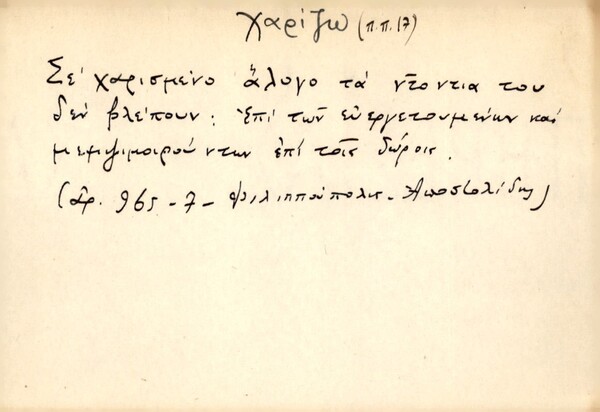 χαρίζω (π.π. 17)
Σέ χαρισμένο ἄλογο τά ντόντια του
δέν βλέπουν : Ἐπί τῶν εὐεργετουμένων καί
μεμψιμοιρούντων ἐπί τοῖς δώροις.
(ἀρ. 965 - 7 - Φιλιππούπολις - Ἀποστολίδης)